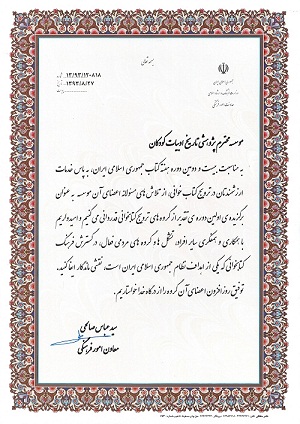 بسمه تعالی
۱۳/۹۳/۱۲۰۸۱۸
۱۳۹۳/۸/۲۷
موسسه محترم پژوهشی تاریخ ادبیات کودکان
به مناسبت بیست و دومین دوره هفته کتاب جمهوری اسلامی ایران، به پاس خدمات
ارزشمندتان در ترویج کتاب‌خوانی، از تلاش‌های مسئولانه اعضای آن موسسه به عنوان
برگزیده‌ی اولین دوره‌ی تقدیر از گروه‌های ترویج کتابخوانی قدردانی می‌کنیم و امیدواریم
با همکاری و همفکری سایر افراد، تشکل‌ها و گروه‌های مردمی فعال، در گسترش فرهنگ
کتابخوانی که یکی از اهداف نظام جمهوری اسلامی ایران است، نقشی ماندگار ایفا کنید.
توفیق روزافزون اعضای آن گروه را از درگاه خدا خواستاریم.
سید عباس صالحی
معاون امور فرهنگی